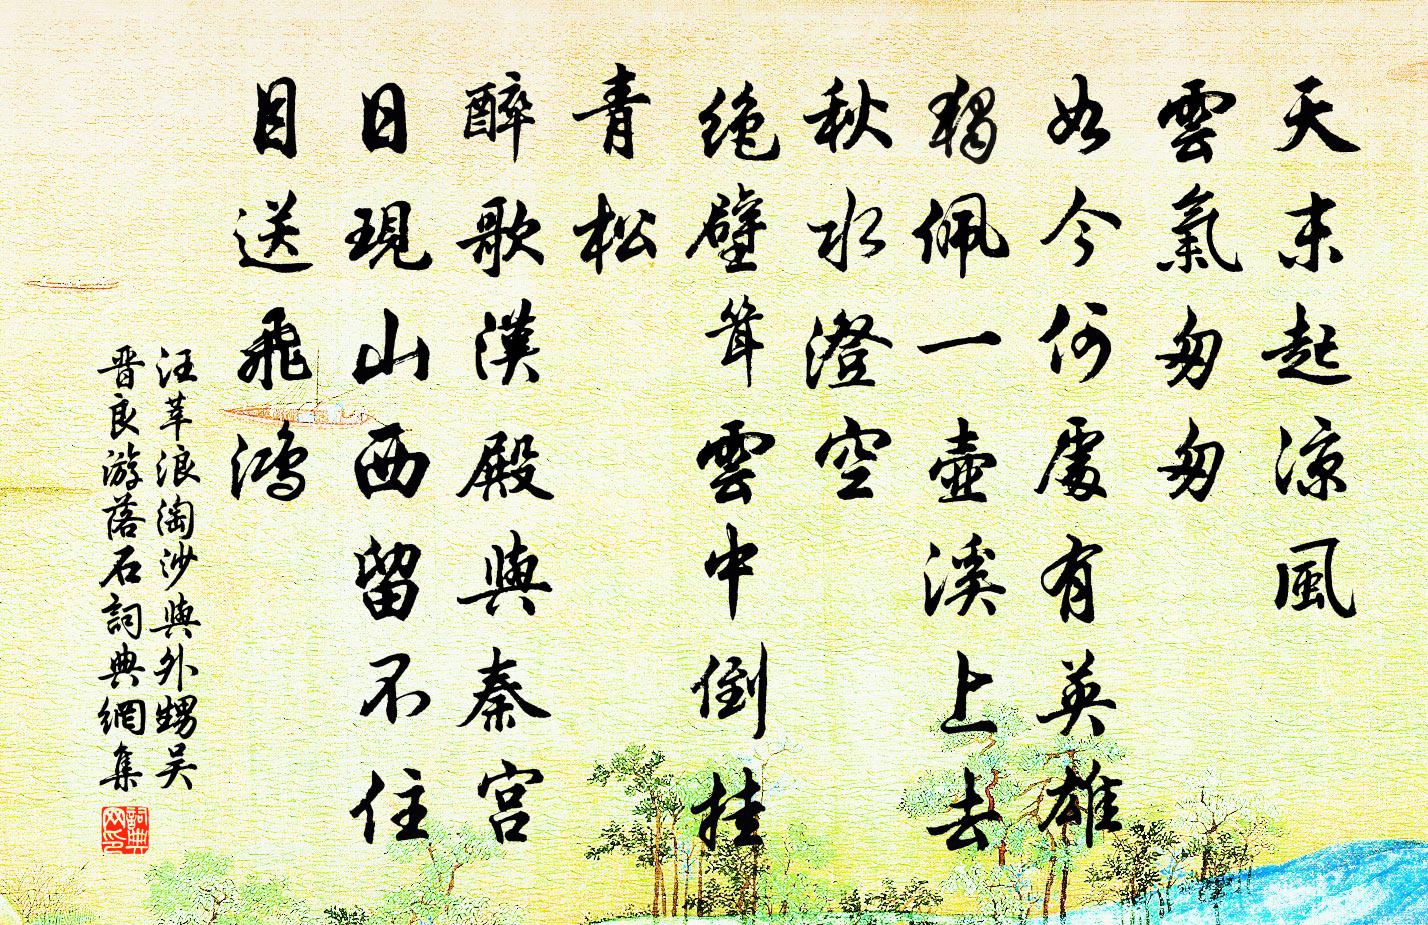 天末起涼風
雲氣匆匆
如今何處有英雄
獨佩一壺溪上去
秋水澄空
絶壁聳雲中倒挂
青松
醉歌漢殿與秦宮
日現山西留不住
目送飛鴻
汪莘浪淘沙與外甥吴
晋良游落石詞典網集
詞典
网印